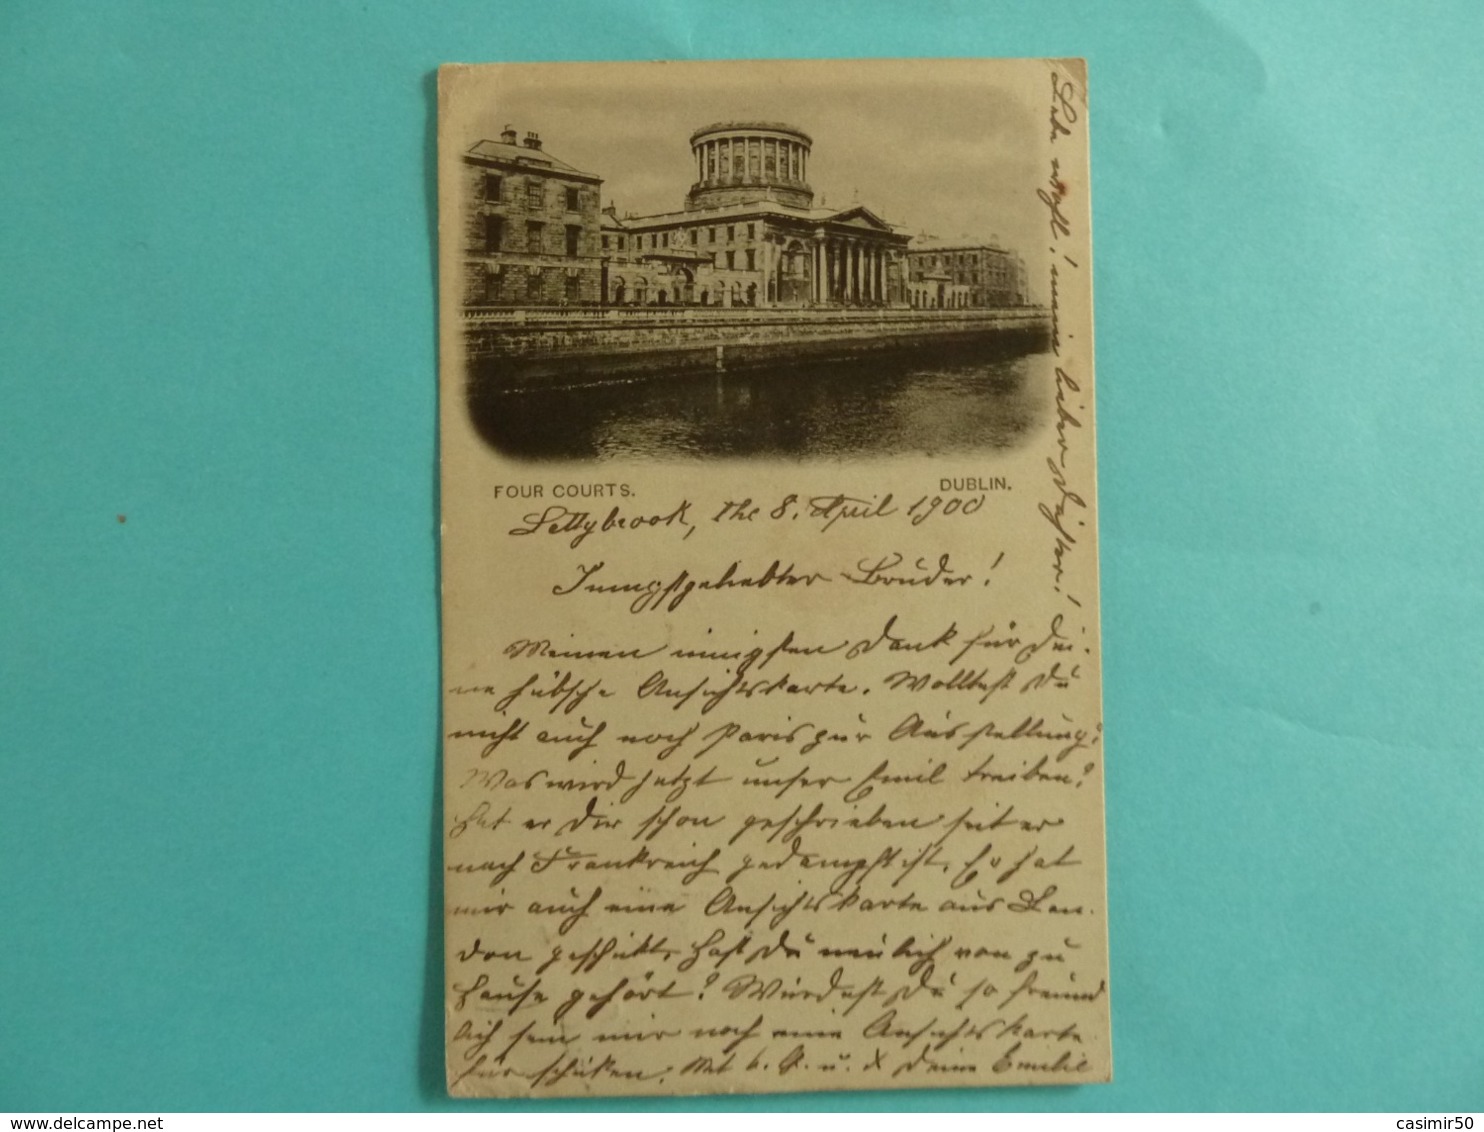 FOUR COURTS. DUBLIN.
Lettybrook, the 8. April 1900
Innigstgeliebter Bruder!
Meinen innigsten Dank für Dei-
ne hübsche Ansichtskarte. Wolltest Du
nicht auch noch Paris zur Ausstellung?
Was wird jetzt unser Emil treiben?
Hat er Dir schon geschrieben seit er
nach Frankreich gedampft ist. Er hat
mir auch eine Ansichtskarte aus Lon-
don geschickt. Hast Du neulich von zu
Hause gehört? Würdest Du so freund
lich sein mir noch eine Ansichtskarte
her schicken. Mit b. G. u. K Deine Emilie
Lebe wohl! mein lieber
casimir50